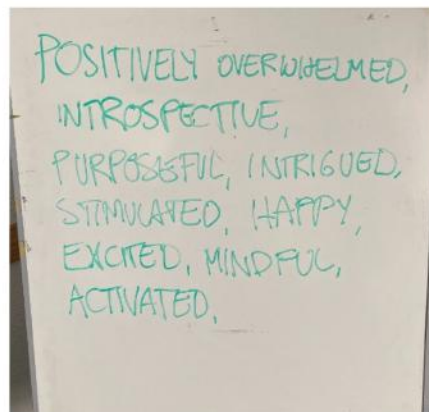 POSITIVELY OVERWHELMED,
INTROSPECTIVE,
PURPOSEFUL, INTRIGUED,
STIMULATED, HAPPY,
EXCITED, MINDFUL,
ACTIVATED,